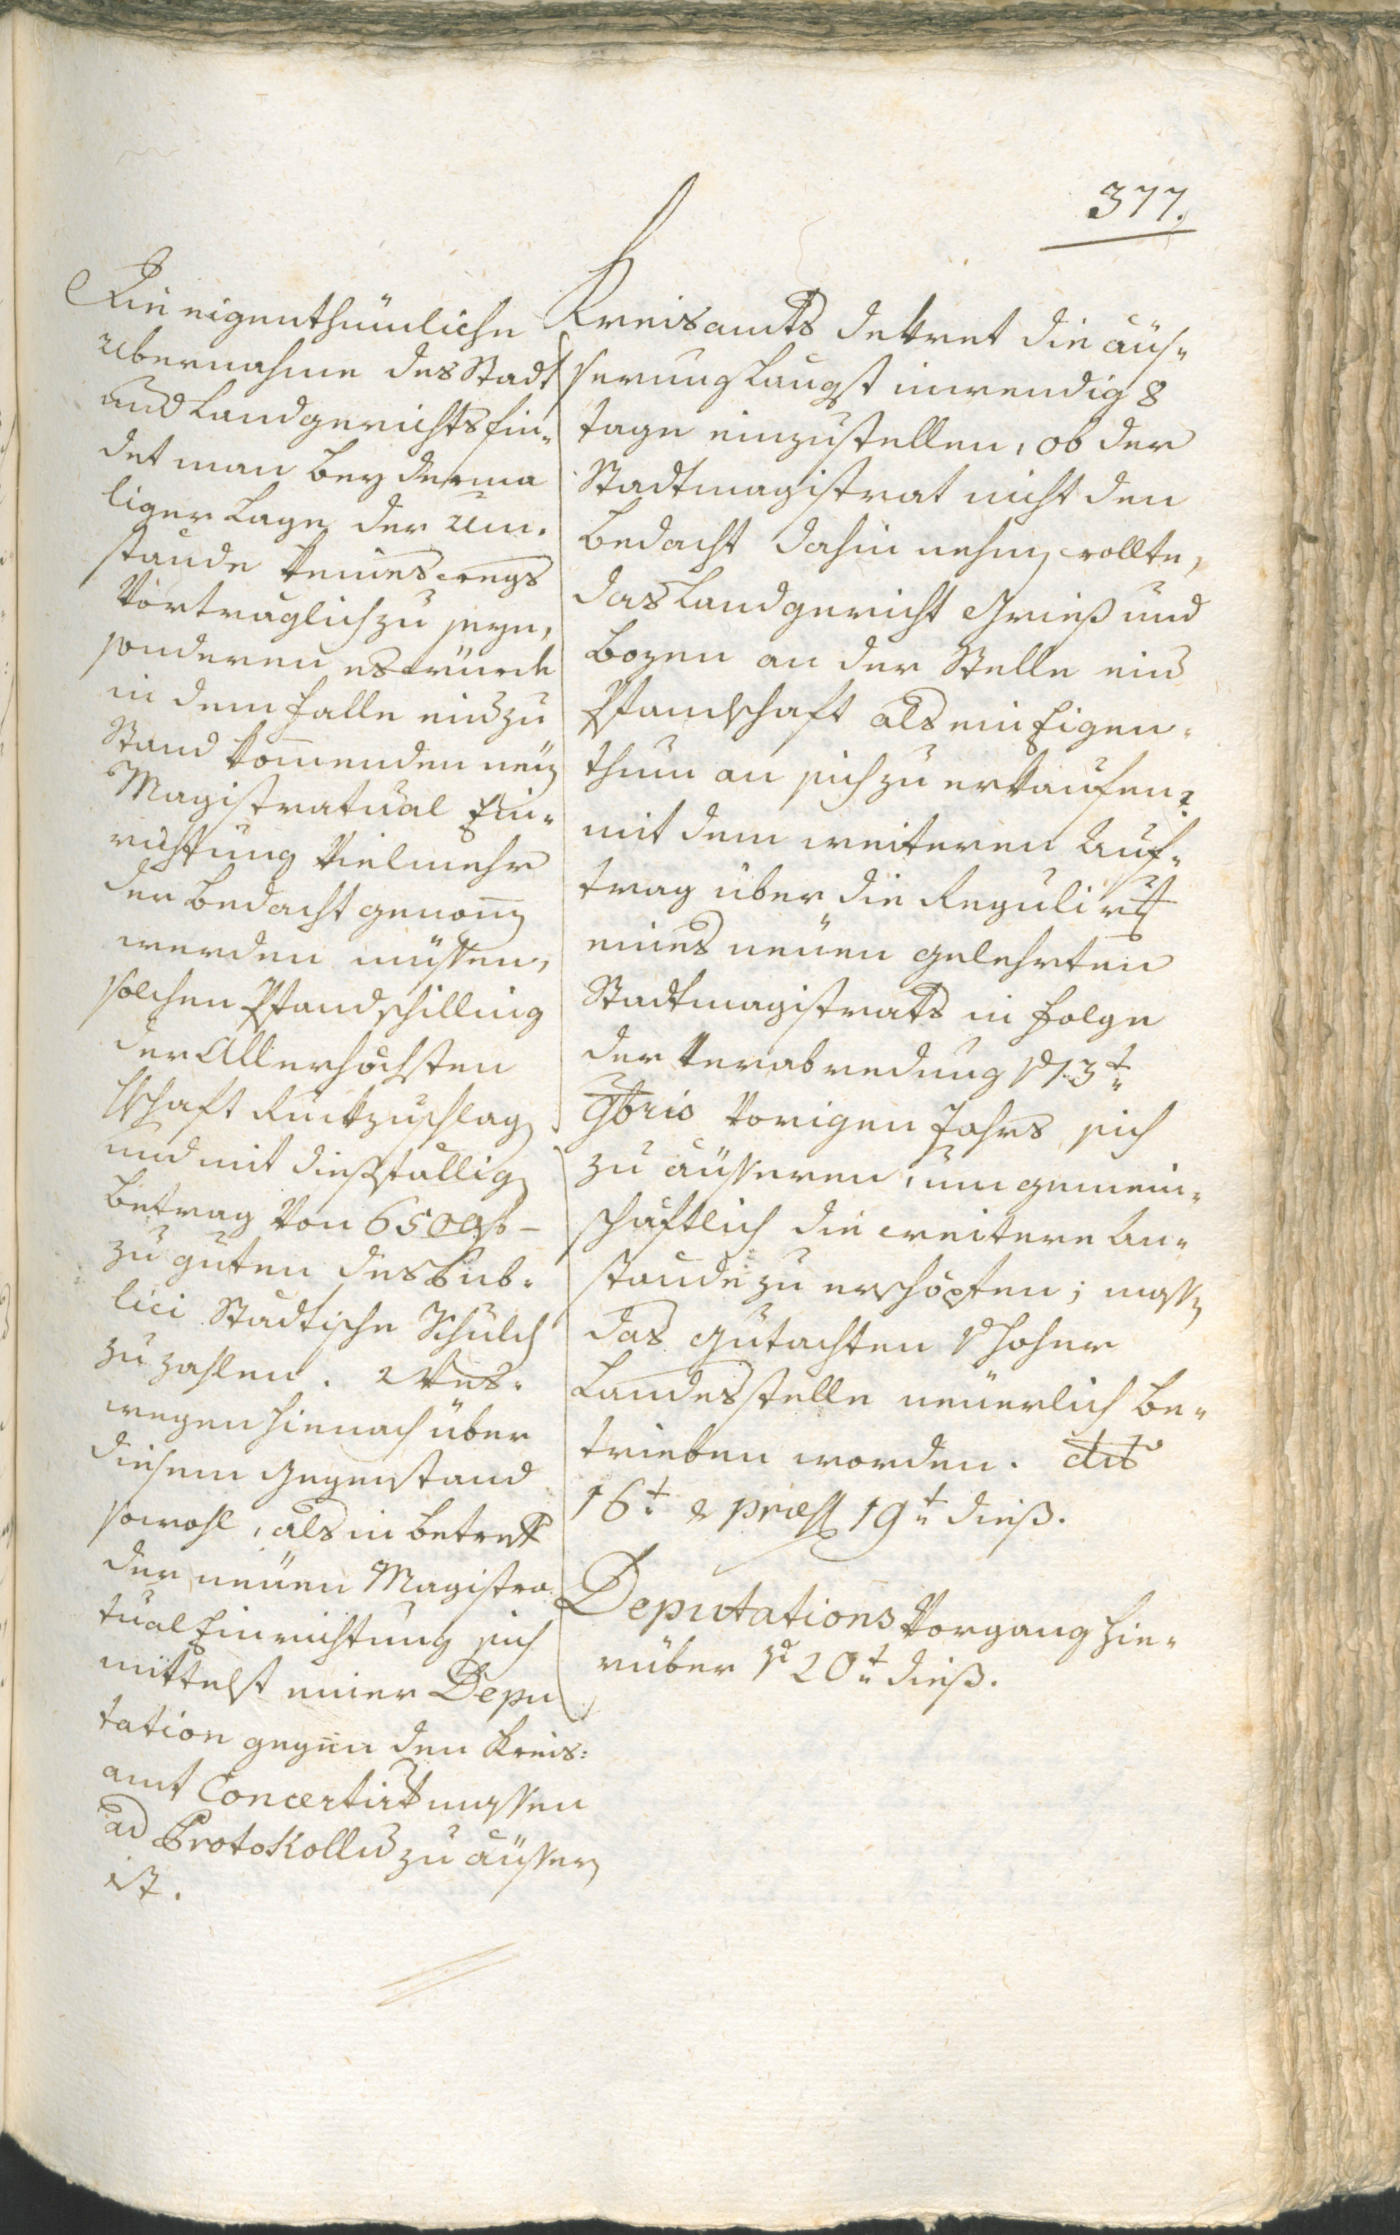 377.
Die eigenthümliche
Ubernahme des Stadt
und Landgerichts fin-
det man bey derma
liger Lage der Um-
stände keineswegs
Vorträglich zu seyn,
sonderen es würde
in dem falle eines zu
Stand kommenden neüen
Magistratual Ein-
richtung Vielmehr
der Bedacht genommen
werden müssen,
solchen Pfandschilling
der Allerhöchsten
Hschaft Rückzuschlagen
und mit dießfälligen
Betrag von 6500 f –
zu guten des Pub-
lici Städtische Schulden
zu zahlen. Wes-
wegen hienach über
diesem Gegenstand
sowohl, als in betreff
der neüen Magistra
tual Einrichtung sich
mittelst einer Depu
tation gegen den Kreis:
amt Concertirtmassen
ad Protokollum zu äussern
ist.
Kreisamts dekret die äus-
serung längst inwendig 8
tage einzustellen, ob der
Stadtmagistrat nicht den
Bedacht dahin nehmen wollte,
das Landgericht Grieß und
Bozen an der Stelle ein
Pfandschaft als ein Eigen-
thum an sich zu erkaufen?
mit dem weiteren Auf-
trag über die Regulirung
eines neüen gelehrten
Stadtmagistrats in folge
der Verabredung dd 13t
9bris vorigen Jahrs sich
zu äusseren, um gemein-
schäftlich die weitere An-
stände zu erschöpfen; massen
das Gutachten Von hoher
Landesstelle neüerlich be-
trieben worden. dto
16t & præs 19t dieß.
Deputations Vorgang hie-
rüber dd 20t dieß.